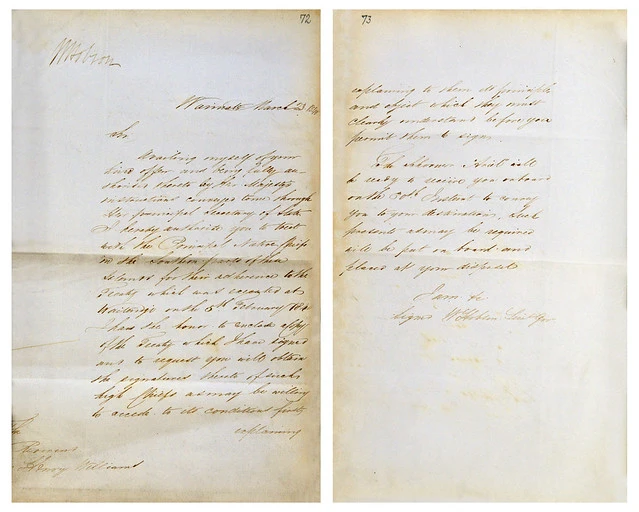 72
W Hobson
Waimate March 23 1840
Sir
Availing myself of your
kind offer and being fully au-
thorized thereto by Her Majesty's
instructions conveyed to me through
Her principal Secretary of State
I hereby authorize you to treat
with the Principal Native Chiefs
in the Southern parts of these
Islands for their adherence to the
Treaty which was executed at
Waitangi on the 6th February 1840
I have the honor to enclose a copy
of the Treaty which I have signed
and to request you will obtain
the signatures thereto of such
high Chiefs as may be willing
to accede to its conditions first
explaining
The
Reverend
Henry Williams
73
explaining to them its principle
and object which they must
clearly understand before you
permit them to sign.
The Schooner will
be ready to receive you on board
on the 30th Instant to convey
you to your destination, Such
presents as may be required
will be put on board and
placed at your disposal
I am &c
Signed W Hobson Lieut Gov